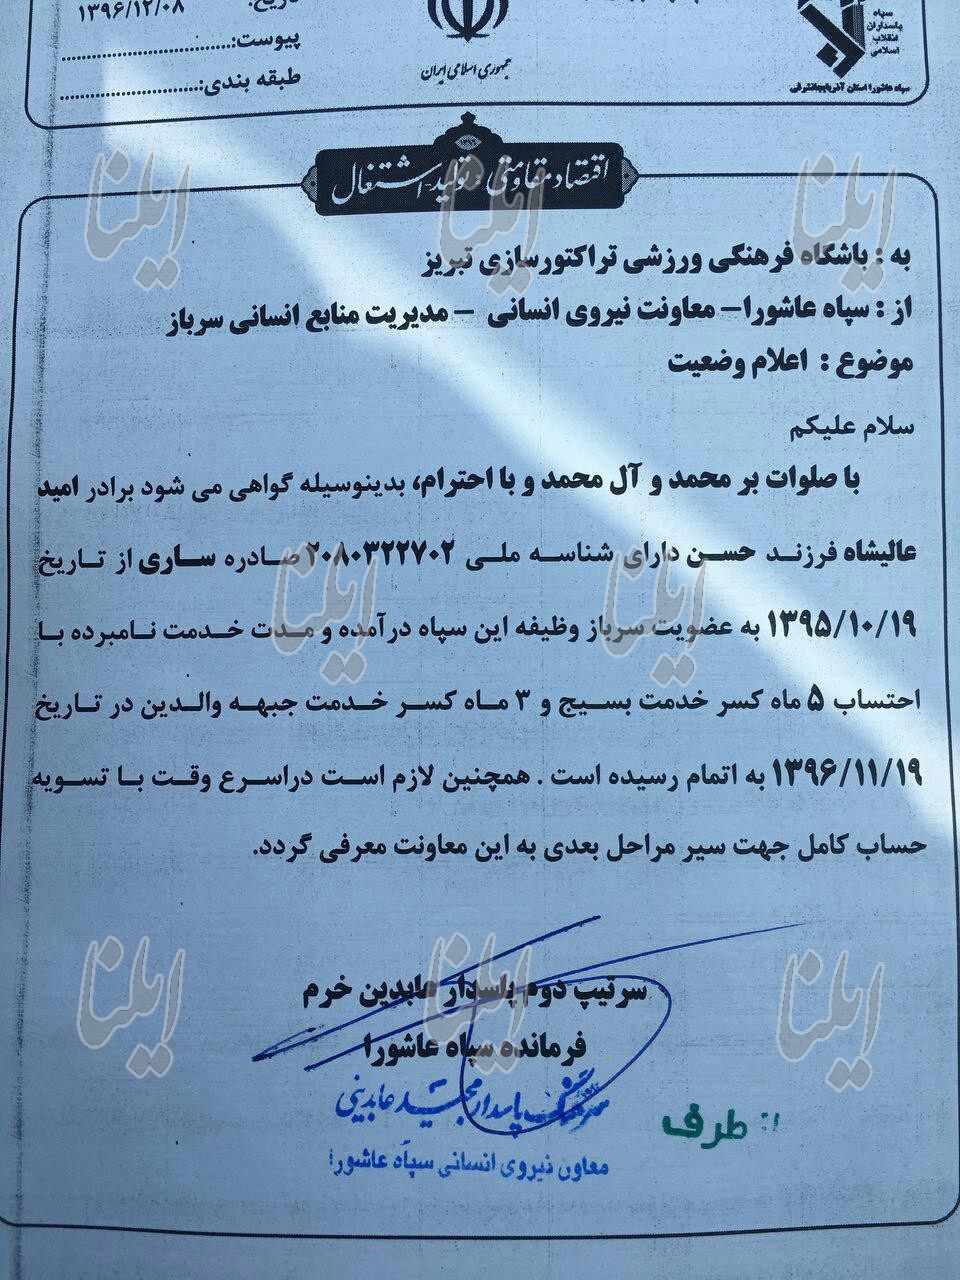 تاریخ: ۱۳۹۶/۱۲/۰۸
پیوست:
طبقه بندی:
جمهوری اسلامی ایران
سپاه
پاسداران
انقلاب
اسلامی
سپاه عاشورا استان آذربایجانشرقی
۱۳۹۶
اقتصاد مقاومتی، تولید - اشتغال
به : باشگاه فرهنگی ورزشی تراکتورسازی تبریز
از : سپاه عاشورا – معاونت نیروی انسانی – مدیریت منابع انسانی سرباز
موضوع : اعلام وضعیت
سلام علیکم
با صلوات بر محمد و آل محمد و با احترام، بدینوسیله گواهی می شود برادر امید
عالیشاه فرزند حسن دارای شناسه ملی ۲۰۸۰۳۲۲۷۰۲ صادره ساری از تاریخ
۱۳۹۵/۱۰/۱۹ به عضویت سرباز وظیفه این سپاه درآمده و مدت خدمت نامبرده با
احتساب ۵ ماه کسر خدمت بسیج و ۳ ماه کسر خدمت جبهه والدین در تاریخ
۱۳۹۶/۱۱/۱۹ به اتمام رسیده است . همچنین لازم است دراسرع وقت با تسویه
حساب کامل جهت سیر مراحل بعدی به این معاونت معرفی گردد.
سرتیپ دوم پاسدار عابدین خرم
فرمانده سپاه عاشورا
از طرف
پاسدار مجید عابدینی
معاون نیروی انسانی سپاه عاشورا
ایلنا
ایلنا
ایلنا
ایلنا
ایلنا
ایلنا
ایلنا
ایلنا